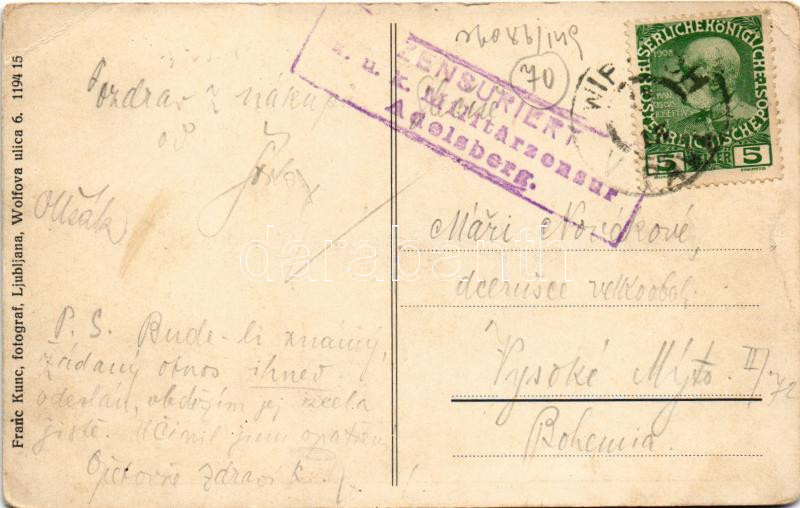 Franc Kunc, fotograf, Ljubljana, Wolfova ulica 6. 1194 15
Pozdrav z nákupu
od
P. S. Bude-li známý,
žádaný obnos ihned
odeslán, obdržím jej zcela
jistě. Učinil jsem opatření
Opětovně zdraví
ZENSURIERT
k. u. k. Militärzensur
Adelsberg.
70
WIP
KAISERLICHE KÖNIGLICHE
1908
5 5
Máři Novákové,
dcerušce velkoobch.
Vysoké Mýto II/72
Bohemia.
darabanth